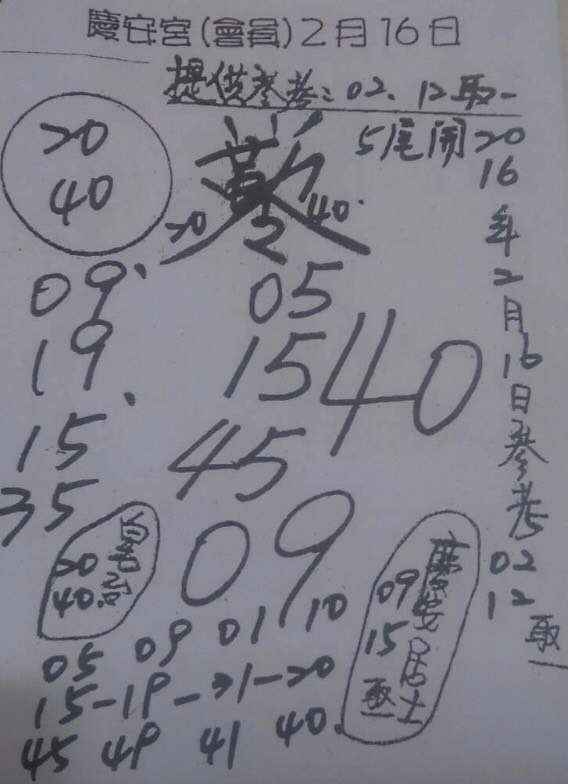 慶安宮(會員)2月16日
提供參考:02、12取一
5尾開
20
40
20
40
2016年2月16日參考
02
12
取一
09
19
15
35
05
15
45
40
09
20
40
慶安居士
09
15
取
05 09 01 10
15-19-31-20
45 49 41 40